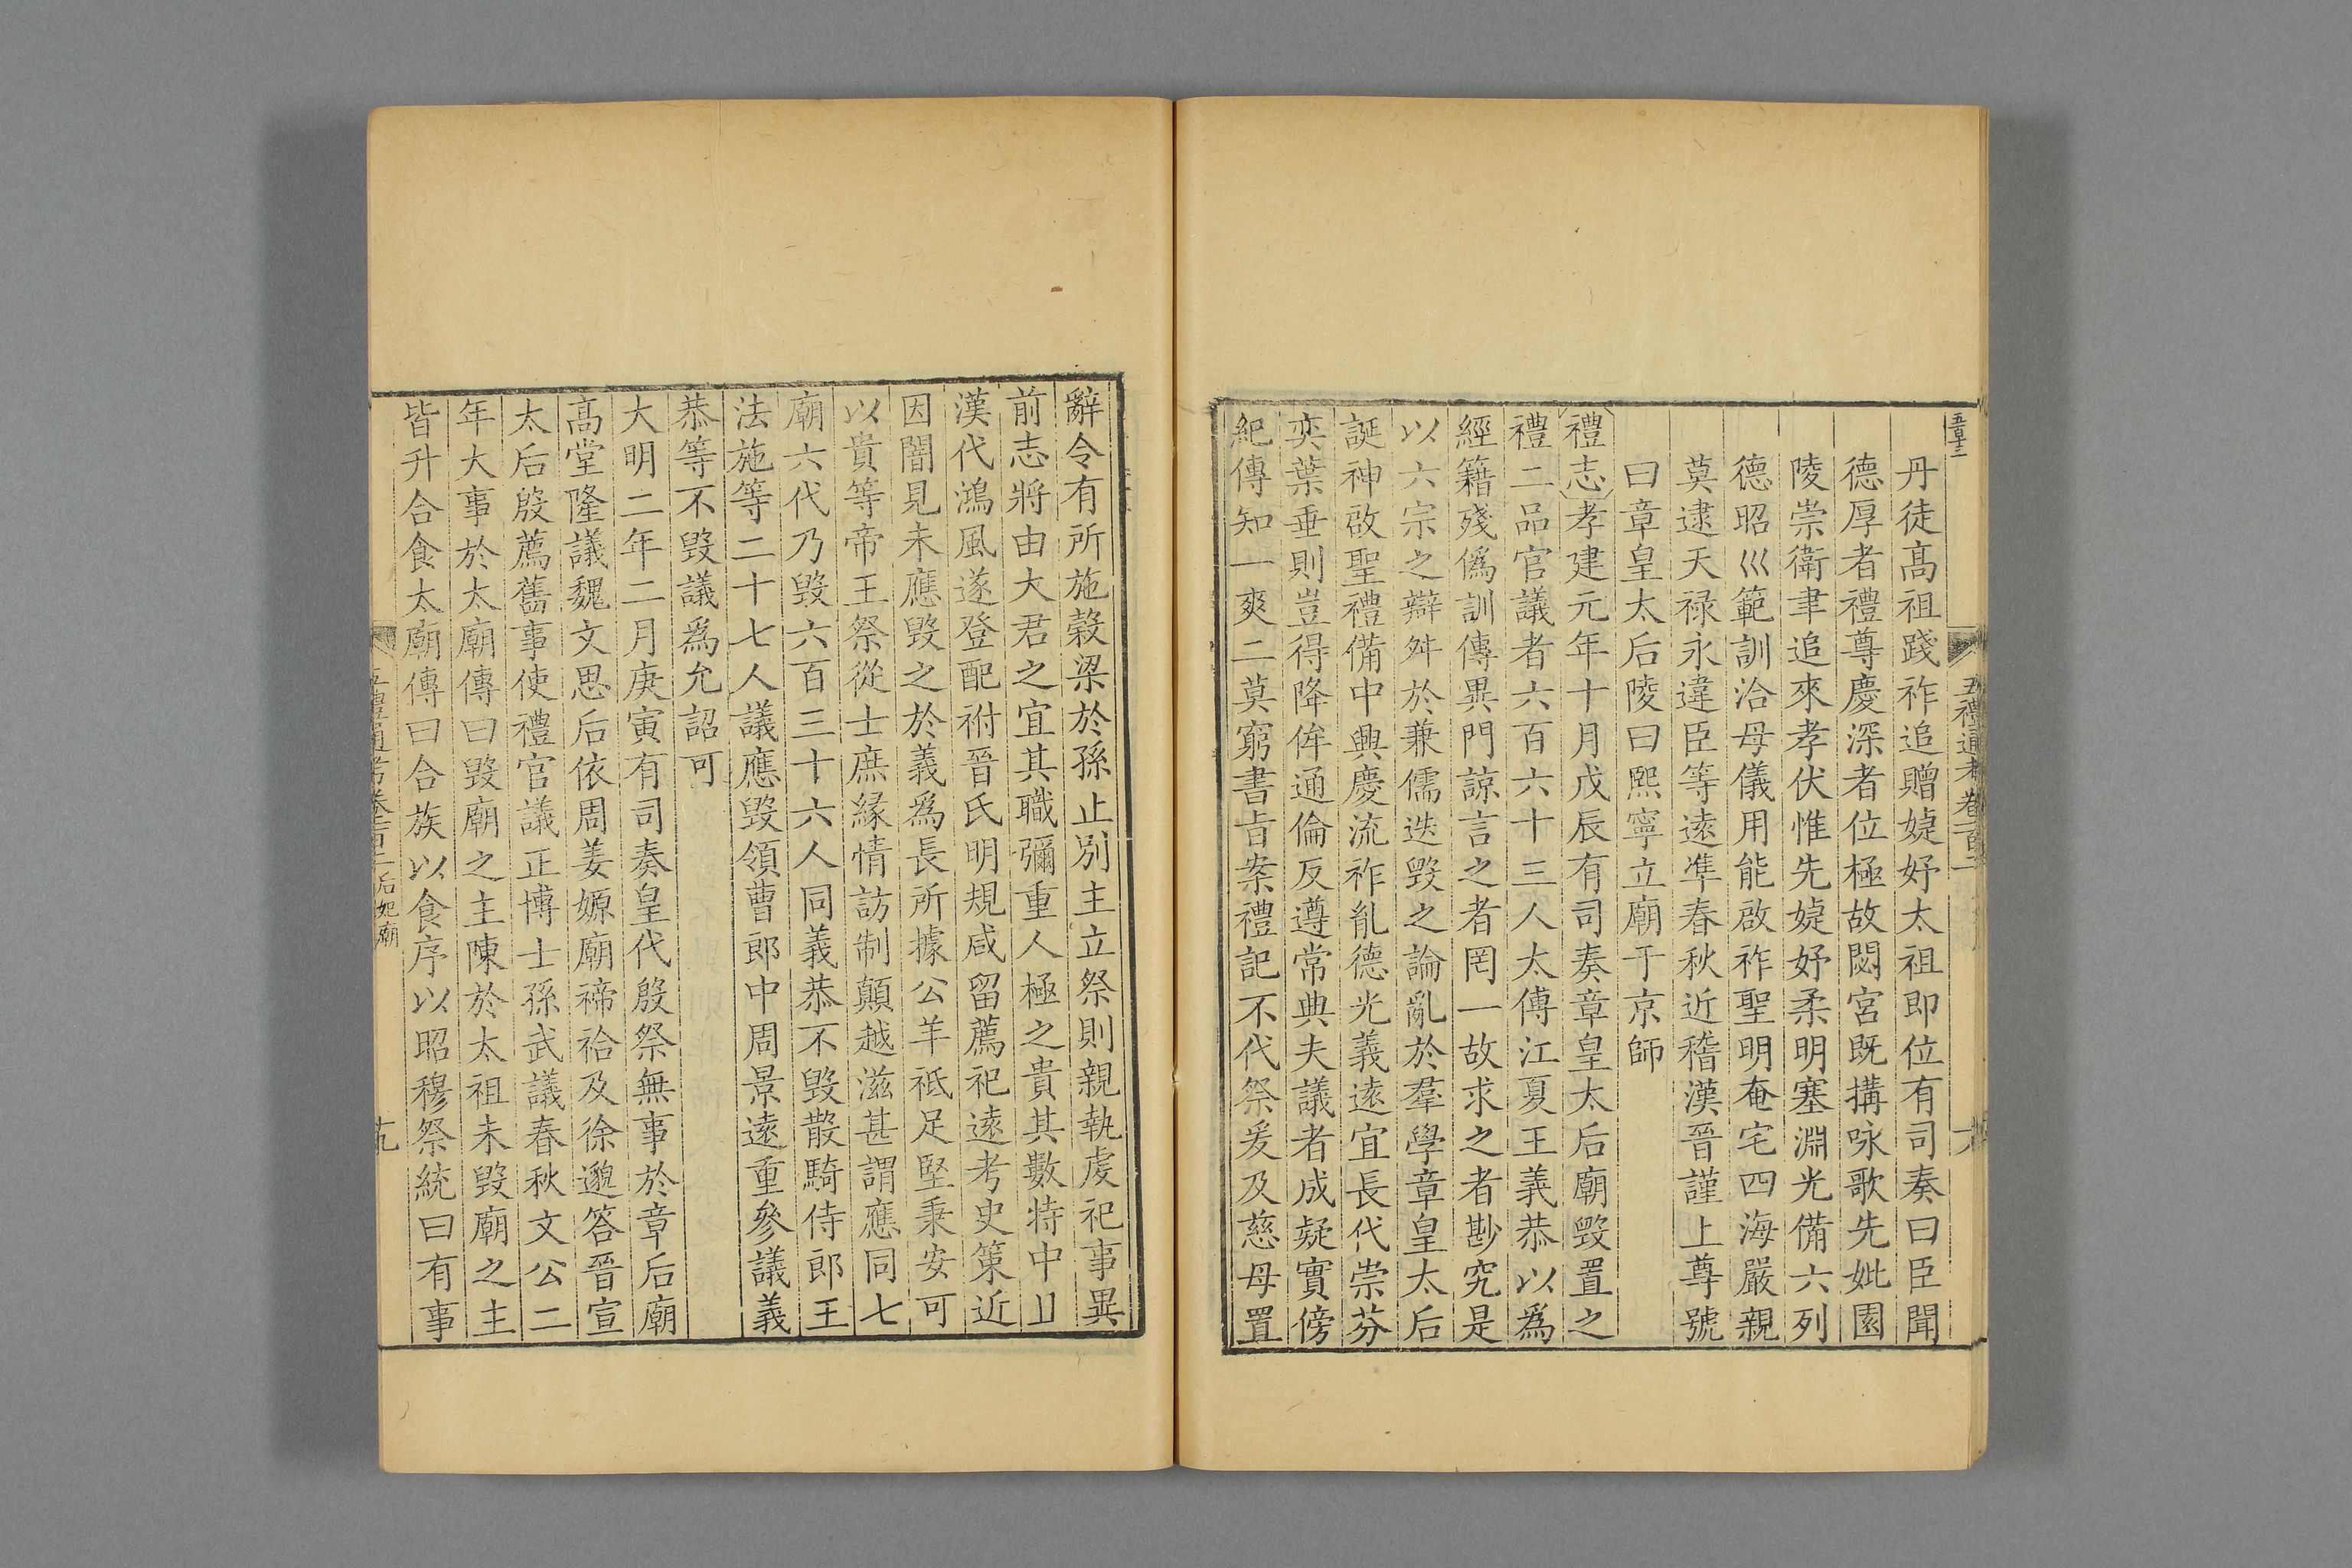 五禮通考卷一百二
丹徒高祖踐祚追贈婕妤太祖即位有司奏曰臣聞
德厚者禮尊慶深者位極故閟宮既搆咏歌先妣園
陵崇衛聿追來孝伏惟先婕妤柔明塞淵光備六列
德昭巛範訓洽母儀用能啟祚聖明奄宅四海嚴親
莫逮天禄永違臣等遠凖春秋近稽漢晉謹上尊號
曰章皇太后陵曰熙寧立廟于京師
禮志孝建元年十月戊辰有司奏章皇太后廟毀置之
禮二品官議者六百六十三人太傅江夏王義恭以爲
經籍殘僞訓傳異門諒言之者罔一故求之者尠究是
以六宗之辯舛於兼儒迭毀之論亂於羣學章皇太后
誕神啟聖禮備中興慶流祚胤德光義遠宜長代崇芬
奕葉垂則豈得降侔通倫反遵常典夫議者成疑實傍
紀傳知一爽二莫窮書旨案禮記不代祭爰及慈母置
辭令有所施穀梁於孫止別主立祭則親執虔祀事異
前志將由大君之宜其職彌重人極之貴其數特中且
漢代鴻風遂登配祔晉氏明規咸留薦祀遠考史策近
因闇見未應毀之於義爲長所據公羊祗足堅秉安可
以貴等帝王祭從士庶緣情訪制顛越滋甚謂應同七
廟六代乃毀六百三十六人同義恭不毀散騎侍郎王
法施等二十七人議應毀領曹郎中周景遠重參議義
恭等不毀議爲允詔可
大明二年二月庚寅有司奏皇代殷祭無事於章后廟
高堂隆議魏文思后依周姜嫄廟禘祫及徐邈答晉宣
太后殷薦舊事使禮官議正博士孫武議春秋文公二
年大事於太廟傳曰毀廟之主陳於太祖未毀廟之主
皆升合食太廟傳曰合族以食序以昭穆祭統曰有事
五禮通考卷一百二 后妃廟
十九